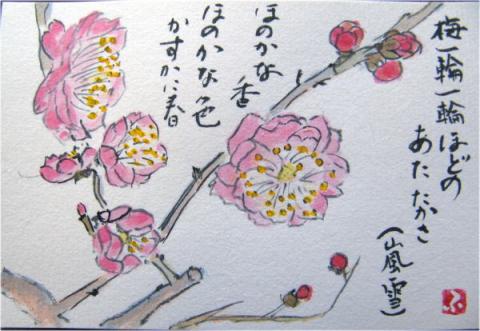 梅一輪一輪ほどの
あたたかさ
（嵐雪）
ほのかな香
ほのかな色
かすかに春
ふ